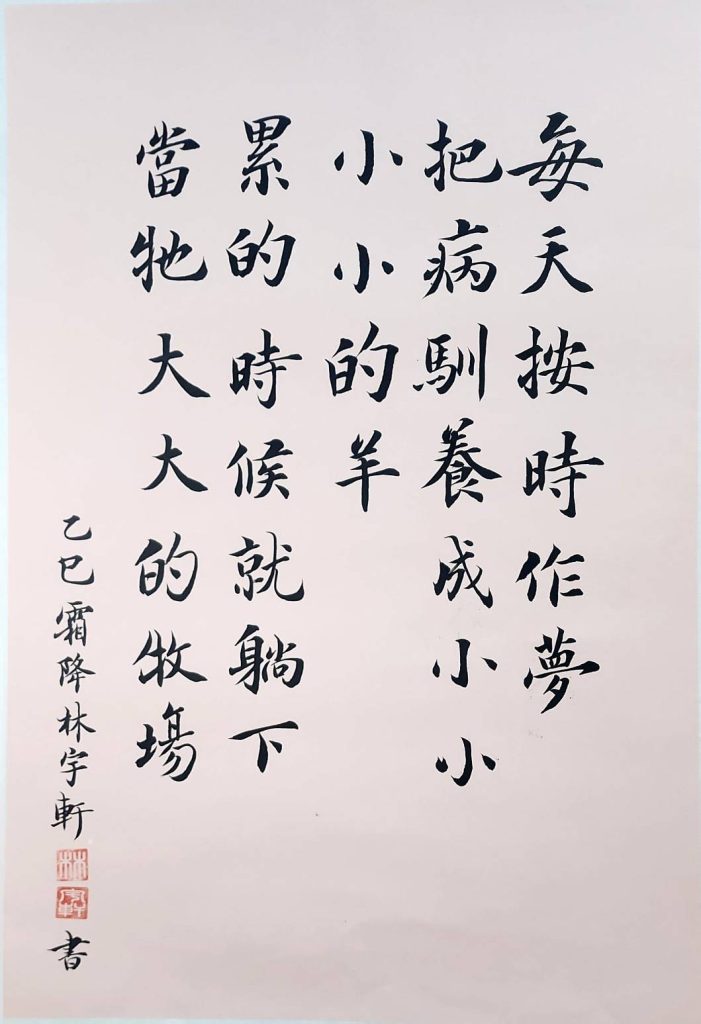 每天按時作夢
把病馴養成小小
小小的羊
累的時候就躺下
當牠大大的牧場
乙巳霜降林宇軒
林
宇軒
書